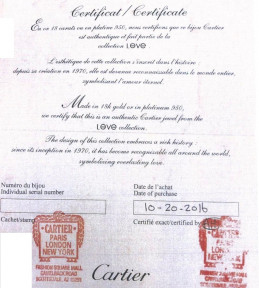 Certificat / Certificate
En or 18 carats ou en platine 950, nous certifions que ce bijou Cartier
est authentique et fait partie de la
collection LOVE
L'esthétique de cette collection s'inscrit dans l'histoire
depuis sa création en 1970, elle est devenue reconnaissable dans le monde entier,
symbolisant l'amour éternel.
Made in 18k gold or in platinum 950,
we certify that this is an authentic Cartier jewel from the
LOVE collection.
The design of this collection embraces a rich history
since its inception in 1970, it has become recognizable all around the world,
symbolizing everlasting love.
Numéro du bijou
Individual serial number
Date de l'achat
Date of purchase
10-20-2016
Cachet/stamp
Certifié exact/certified by
CARTIER
PARIS
LONDON
NEW YORK
FASHION SQUARE MALL
SCOTTSDALE, AZ
CARTIER
PARIS
LONDON
NEW YORK
Cartier